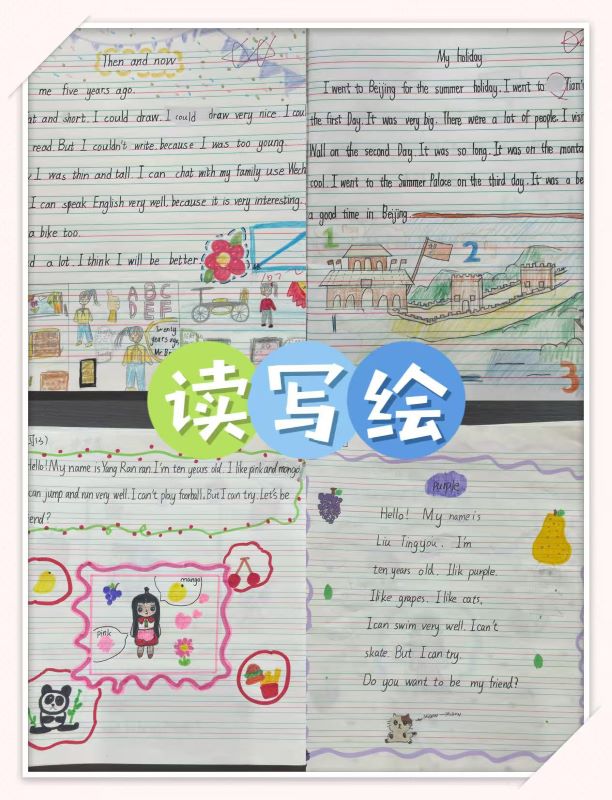 Then and now
me five years ago.
and short. I could draw. I could draw very nice I cou
read. But I couldn't write. because I was too young.
I was thin and tall. I can chat with my family use Wech
I can speak English very well. because it is very interesting.
a bike too.
d a lot. I think I will be better!
ABC
DEE
Twenty
years ago
Mr Br
My holiday
I went to Beijing for the summer holiday. I went to Tian'
the first Day. It was very big. There were a lot of people. I visi
Wall on the second Day. It was so long. It was on the monta
cool. I went to the Summer Palace on the third day. It was a be
a good time in Beijing.
1
2
3
读写绘
Hello! My name is Yang Ran ran. I'm ten years old. I like pink and mango
can jump and run very well. I can't play football. But I can try. Let's be
iend?
mango
pink
purple
Hello! My name is
Liu Tingyou. I'm
ten years old. Ilik purple.
I like grapes. I like cats,
I can swim very well. I can't
skate. But I can try.
Do you want to be my friend?